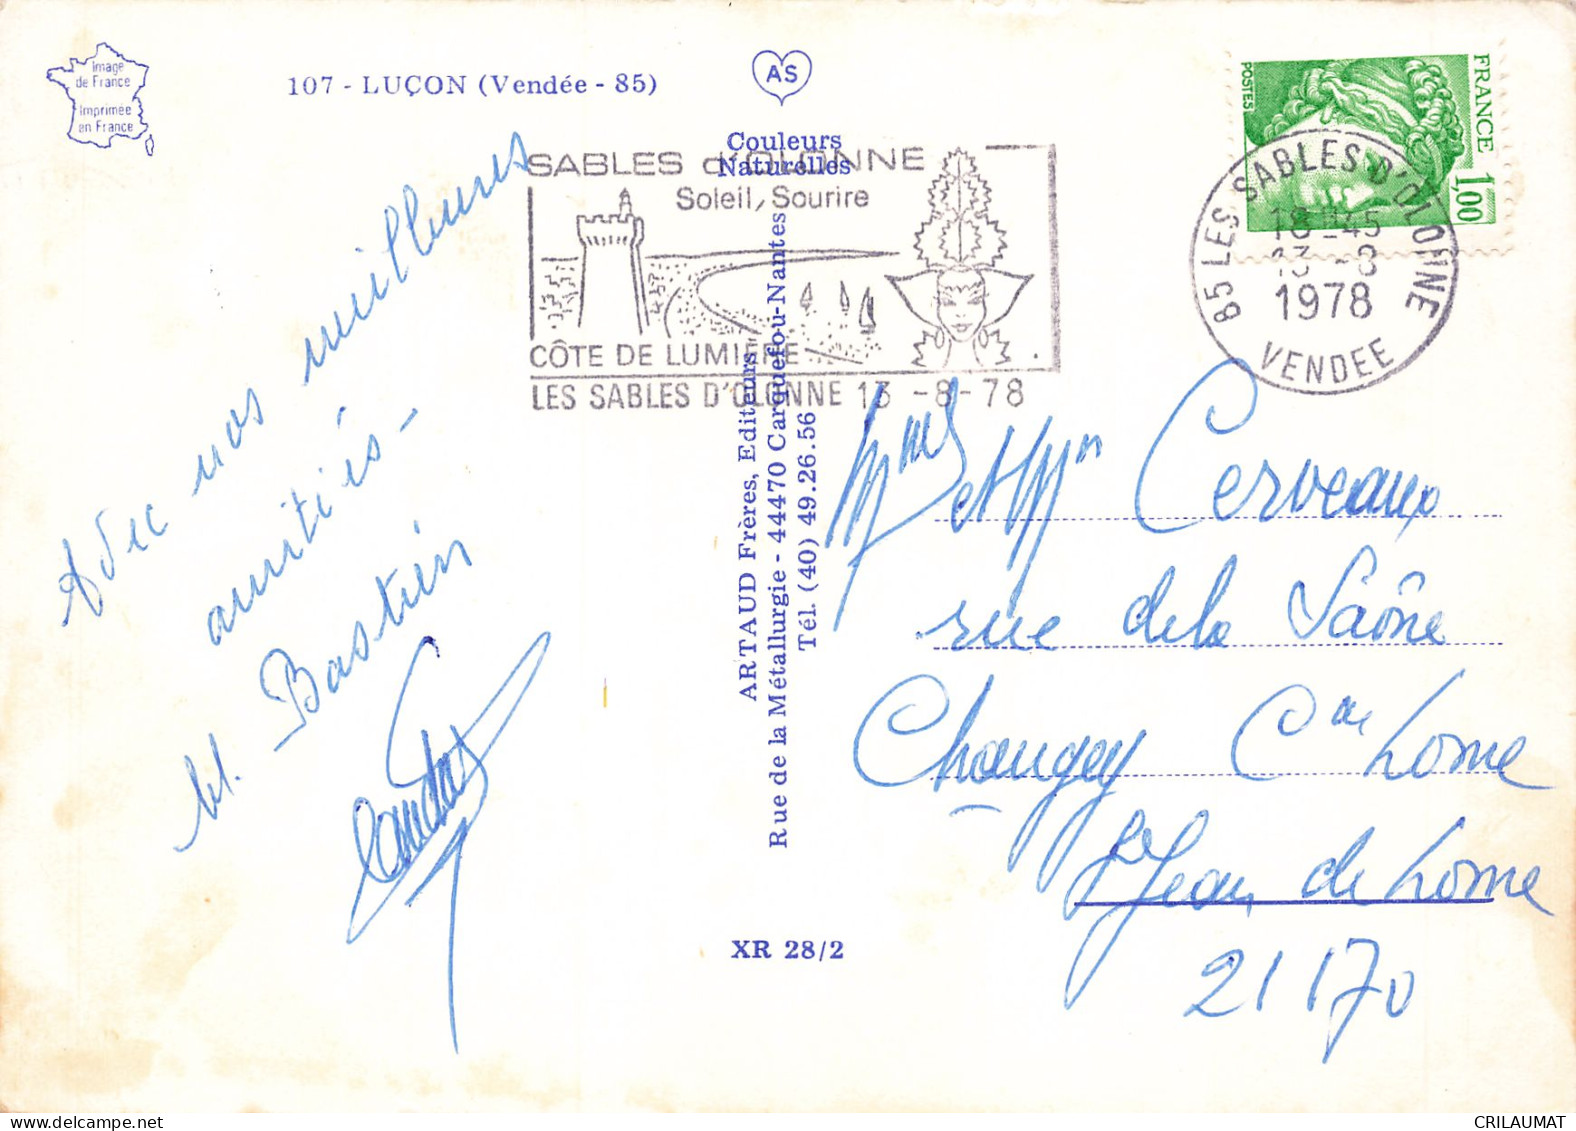 Image
de France
Imprimée
en France
107 - LUÇON (Vendée - 85)
AS
Couleurs
Naturelles
SABLES d'OLONNE
Soleil, Sourire
CÔTE DE LUMIERE
LES SABLES D'OLONNE 13 -8-78
POSTES
FRANCE
1,00
85 LES SABLES D'OLONNE
18-45
13 -8
1978
VENDEE
Avec nos meilleures
amitiés -
M. Bastien
ARTAUD Frères, Editeurs
Rue de la Métallurgie - 44470 Carquefou-Nantes
Tél. (40) 49.26.56
XR 28/2
et Mr Cerveaux
rue de la Saône
Losne
St Jean de Losne
21170
CRILAUMAT